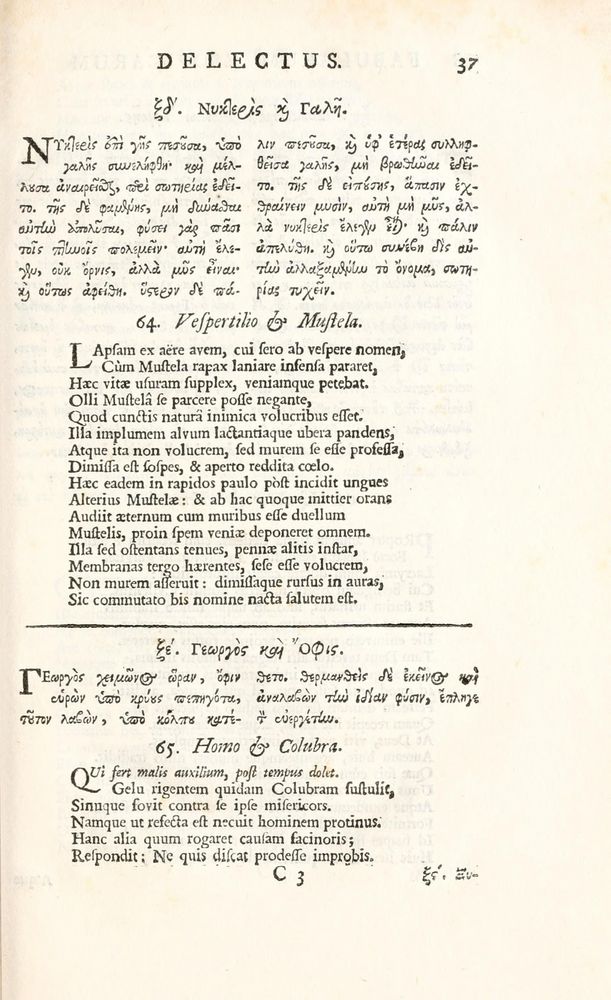 DELECTUS. 37
ξδ'. Νυκτερὶς ϗ Γαλῆ.
ΝΥκτερὶς ἐπὶ γῆς πεσοῦσα, ὑπὸ
γαλῆς συνελήφθη· καὶ μέλ-
λουσα ἀναιρεῖσθαι, περὶ σωτηρίας ἐδεῖ-
το. τῆς δὲ φαμένης, μὴ δύναθαι
αὐτὴν ἀπολῦσαι, φύσει γὰρ πᾶσι
τοῖς πτηνοῖς πολεμεῖν· αὐτὴ ἔλε-
γεν, οὐκ ὄρνις, ἀλλὰ μῦς εἶναι·
ϗ οὕτως ἀφείθη. ὕστερον δὲ πά-
λιν πεσοῦσα, ϗ ὑφ' ἑτέρας συλληφ-
θεῖσα γαλῆς, μὴ βρωθῆναι ἐδεῖ-
το. τῆς δὲ εἰπούσης, ἅπασιν ἐχ-
θραίνειν μυσὶν, αὐτὴ μὴ μῦς, ἀλ-
λὰ νυκτερὶς ἔλεγεν εἶναι· ϗ πάλιν
ἀπελύθη. ϗ οὕτω συνέβη δὶς αὐ-
τὴν ἀλλαξαμένην τὸ ὄνομα, σωτη-
ρίας τυχεῖν.
64. Vespertilio & Mustela.
LApsam ex aëre avem, cui sero ab vespere nomen,
Cùm Mustela rapax laniare infensa pararet,
Hæc vitæ usuram supplex, veniamque petebat.
Olli Mustelâ se parcere posse negante,
Quod cunctis naturâ inimica volucribus esset.
Illa implumem alvum lactantiaque ubera pandens,
Atque ita non volucrem, sed murem se esse professa,
Dimissa est sospes, & aperto reddita cœlo.
Hæc eadem in rapidos paulo pòst incidit ungues
Alterius Mustelæ: & ab hac quoque mittier orans
Audiit æternum cum muribus esse duellum
Mustelis, proin spem veniæ deponeret omnem.
Illa sed ostentans tenues, pennæ alitis instar,
Membranas tergo hærentes, sese esse volucrem,
Non murem asseruit: dimissaque rursus in auras,
Sic commutato bis nomine nacta salutem est.
ξέ. Γεωργὸς καὶ Ὄφις.
ΓΕωργὸς χειμῶνος ὥραν, ὄφιν
εὑρὼν ὑπὸ κρύους πεπηγότα,
τοῦτον λαβὼν, ὑπὸ κόλπου κατέ-
θετο. θερμανθεὶς δὲ ἐκεῖνος καὶ
ἀναλαβὼν τὴν ἰδίαν φύσιν, ἔπληξε
τ εὐεργέτην.
65. Homo & Colubra.
QUi fert malis auxilium, post tempus dolet.
Gelu rigentem quidam Colubram sustulit,
Sinuque fovit contra se ipse misericors.
Namque ut refecta est necuit hominem protinus.
Hanc alia quum rogaret causam facinoris;
Respondit; Ne quis discat prodesse improbis.
C 3 ξϛ'. Ξυ-